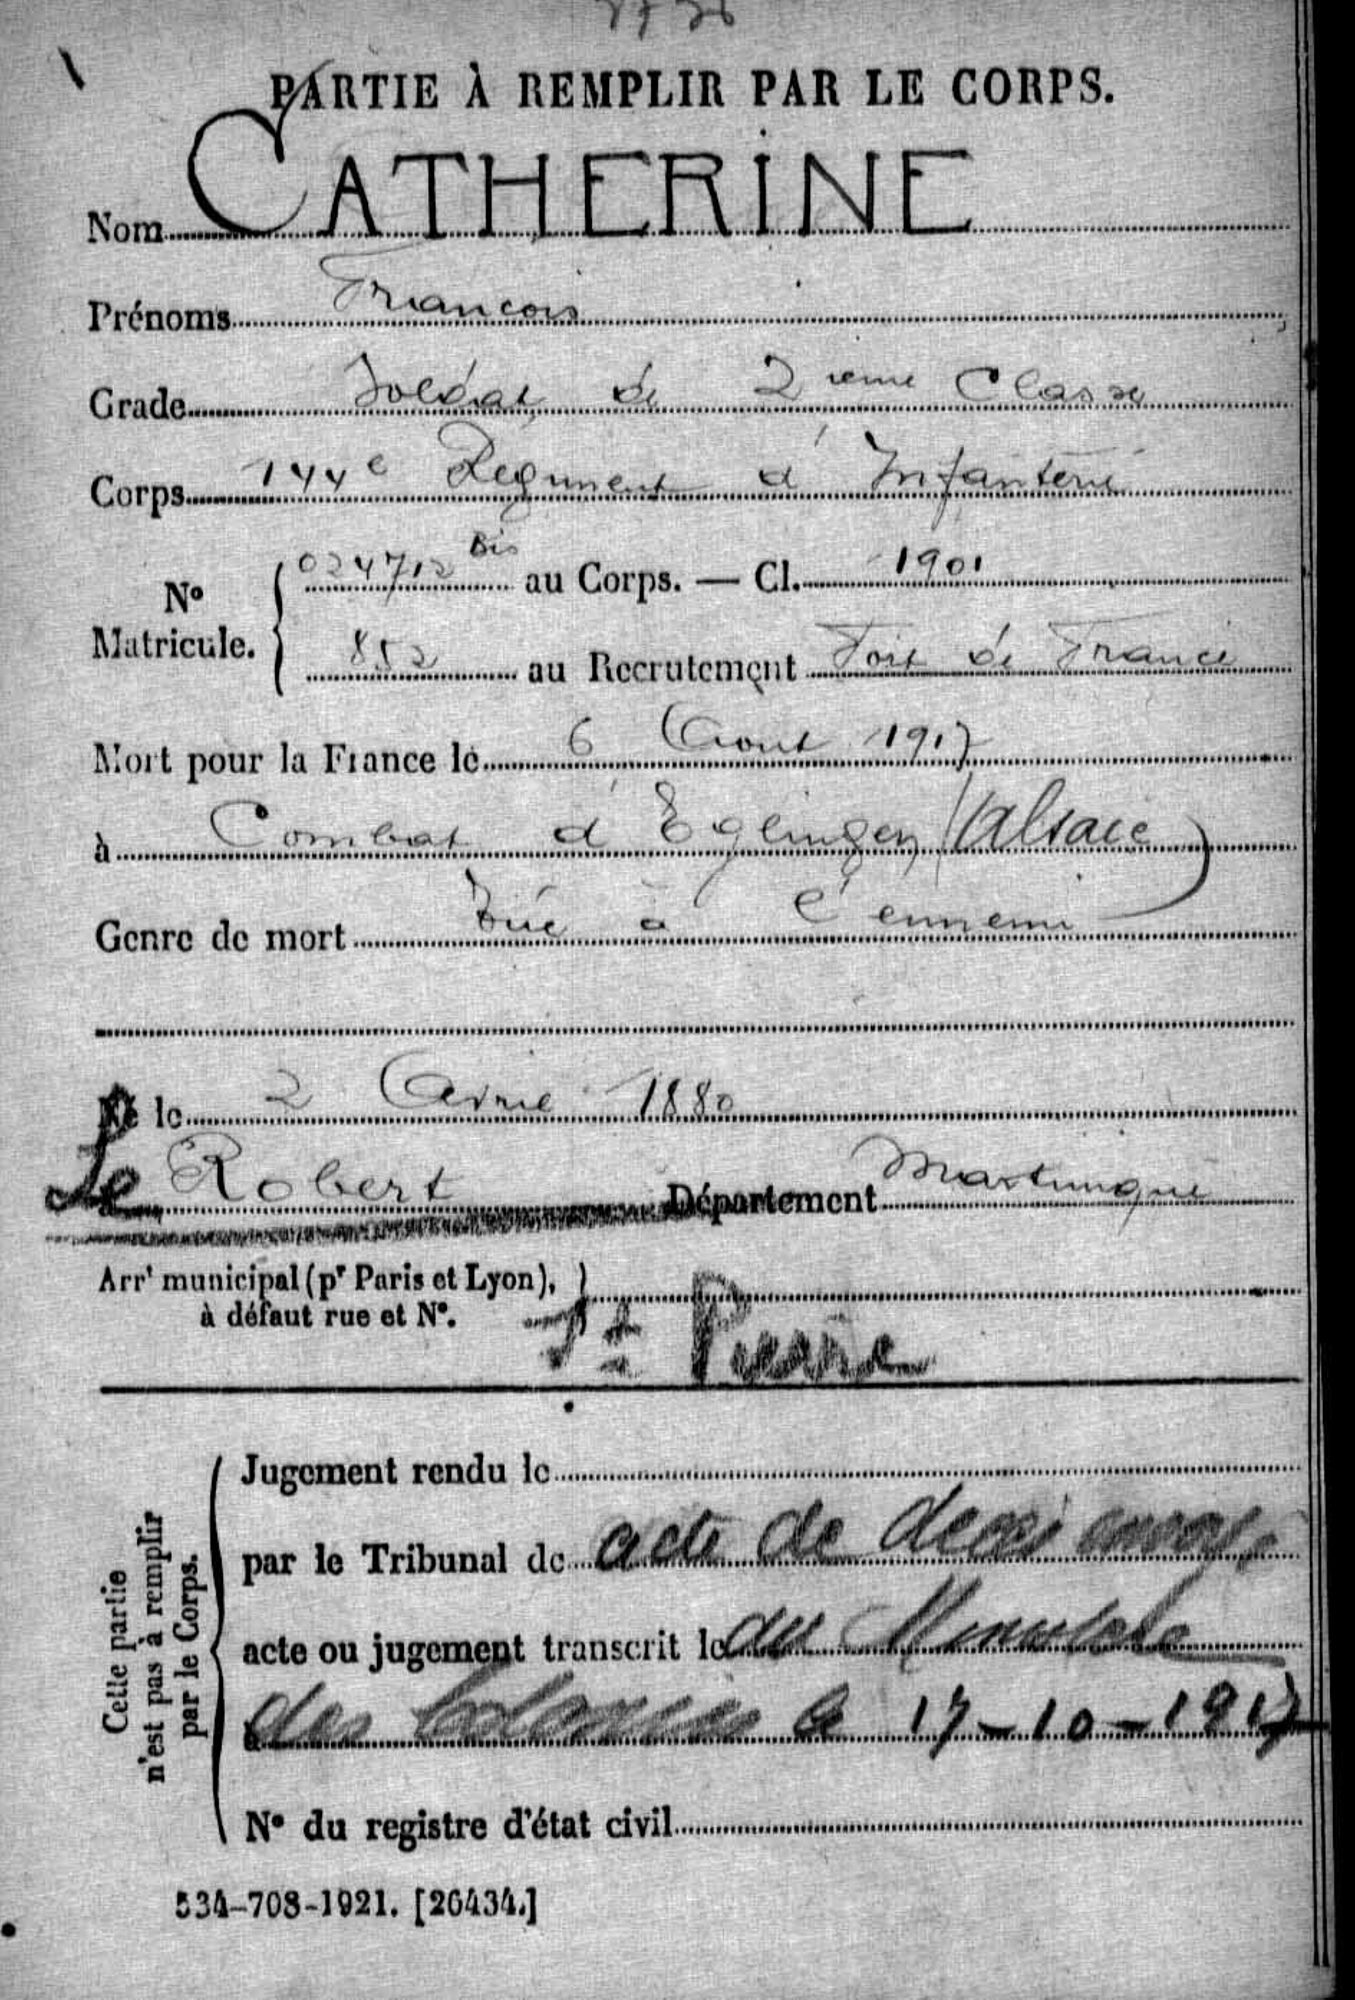 PARTIE À REMPLIR PAR LE CORPS.
Nom CATHERINE
Prénoms François
Grade Soldat de 2ième Classe
Corps 144e Régiment d'Infanterie
024712 Bis au Corps. — Cl. 1901
No Matricule.
852 au Recrutement Fort de France
Mort pour la France le 6 Aout 1917
à Combat d'Eglingen (Alsace)
Genre de mort Tué à l'ennemi
Né le 2 Avril 1880
Le Robert Département Martinique
Arrt municipal (pr Paris et Lyon),
à défaut rue et No.
St Pierre
Jugement rendu le
par le Tribunal de acte de deces envoyé
acte ou jugement transcrit le du Ministère
à des Colonies le 17-10-1917
No du registre d'état civil
Cette partie
n'est pas à remplir
par le Corps.
534-708-1921. [26434.]